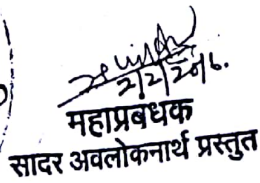 2/2/2016.
महाप्रबधक
सादर अवलोकनार्थ प्रस्तुत